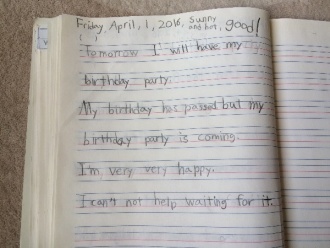 Friday, April, 1, 2016, Sunny and hot, good!
Tomorrow I will have my
birthday party.
My birthday has passed but my
birthday party is coming.
I'm very very happy.
I can't not help waiting for it.